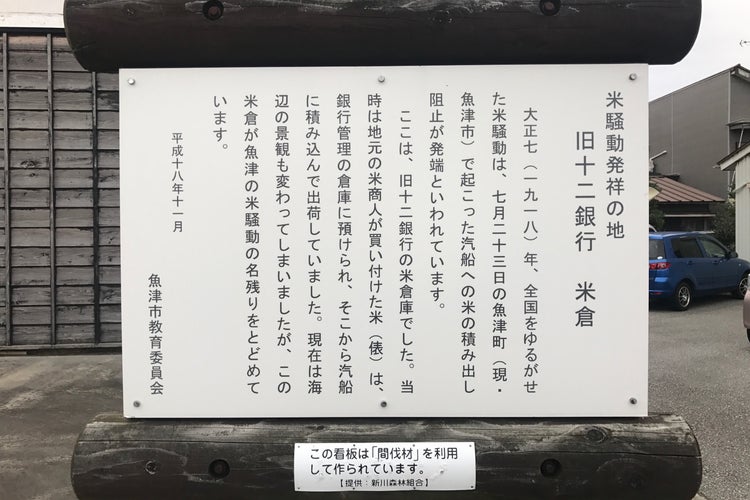 米騒動発祥の地
旧十二銀行　米倉
大正七（一九一八）年、全国をゆるがせ
た米騒動は、七月二十三日の魚津町（現・
魚津市）で起こった汽船への米の積み出し
阻止が発端といわれています。
ここは、旧十二銀行の米倉庫でした。当
時は地元の米商人が買い付けた米（俵）は、
銀行管理の倉庫に預けられ、そこから汽船
に積み込んで出荷していました。現在は海
辺の景観も変わってしまいましたが、この
米倉が魚津の米騒動の名残りをとどめて
います。
平成十八年十一月
魚津市教育委員会
この看板は「間伐材」を利用
して作られています。
【提供：新川森林組合】